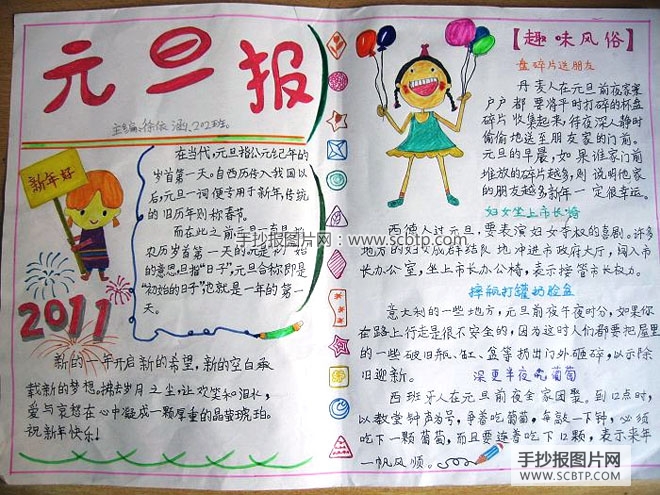 元旦报
主编:徐依涵、202班。
新年好
在当代,元旦指公元纪年的
岁首第一天。自西历传入我国以
后,元旦一词便专用于新年,传统
的旧历年则称春节。
而在此之前,元旦
农历岁首第一天的。元是初始
的意思,旦指“日子”,元旦合称即是
“初始的日子”,也就是一年的第一
天。
2011
新的一年开启新的希望,新的空白承
载新的梦想。拂去岁月之尘,让欢笑和泪水,
爱与哀愁在心中凝成一颗厚重的晶莹琥珀。
祝新年快乐!
【趣味风俗】
盘碎片送朋友
丹麦人在元旦前夜家家
户户都要将平时打碎的杯盘
碎片收集起来,待夜深人静时
偷偷地送至朋友家的门前。
元旦的早晨,如果谁家门前
堆放的碎片越多,则说明他家
的朋友越多新年一定很幸运。
妇女坐上市长椅
西德人过元旦,要表演妇女夺权的喜剧。许多
地方的妇女成群结队地冲进市政府大厅,闯入市
长办公室,坐上市长办公椅,表示接管市长权力。
摔瓶打罐扔脸盆
意大利的一些地方,元旦前夜午夜时分,如果你
在路上行走是很不安全的,因为这时人们都要把屋里
的一些破旧瓶、缸、盆等扔出门外砸碎,以示除
旧迎新。
深更半夜吃葡萄
西班牙人在元旦前夜全家团聚。到12点时,
以教堂钟声为号,争着吃葡萄,每敲一下钟,必须
吃下一颗葡萄,而且要连着吃下12颗,表示来年
一帆风顺。
手抄报图片网:www.scbtp.com
手抄报图片网
WWW.SCBTP.COM